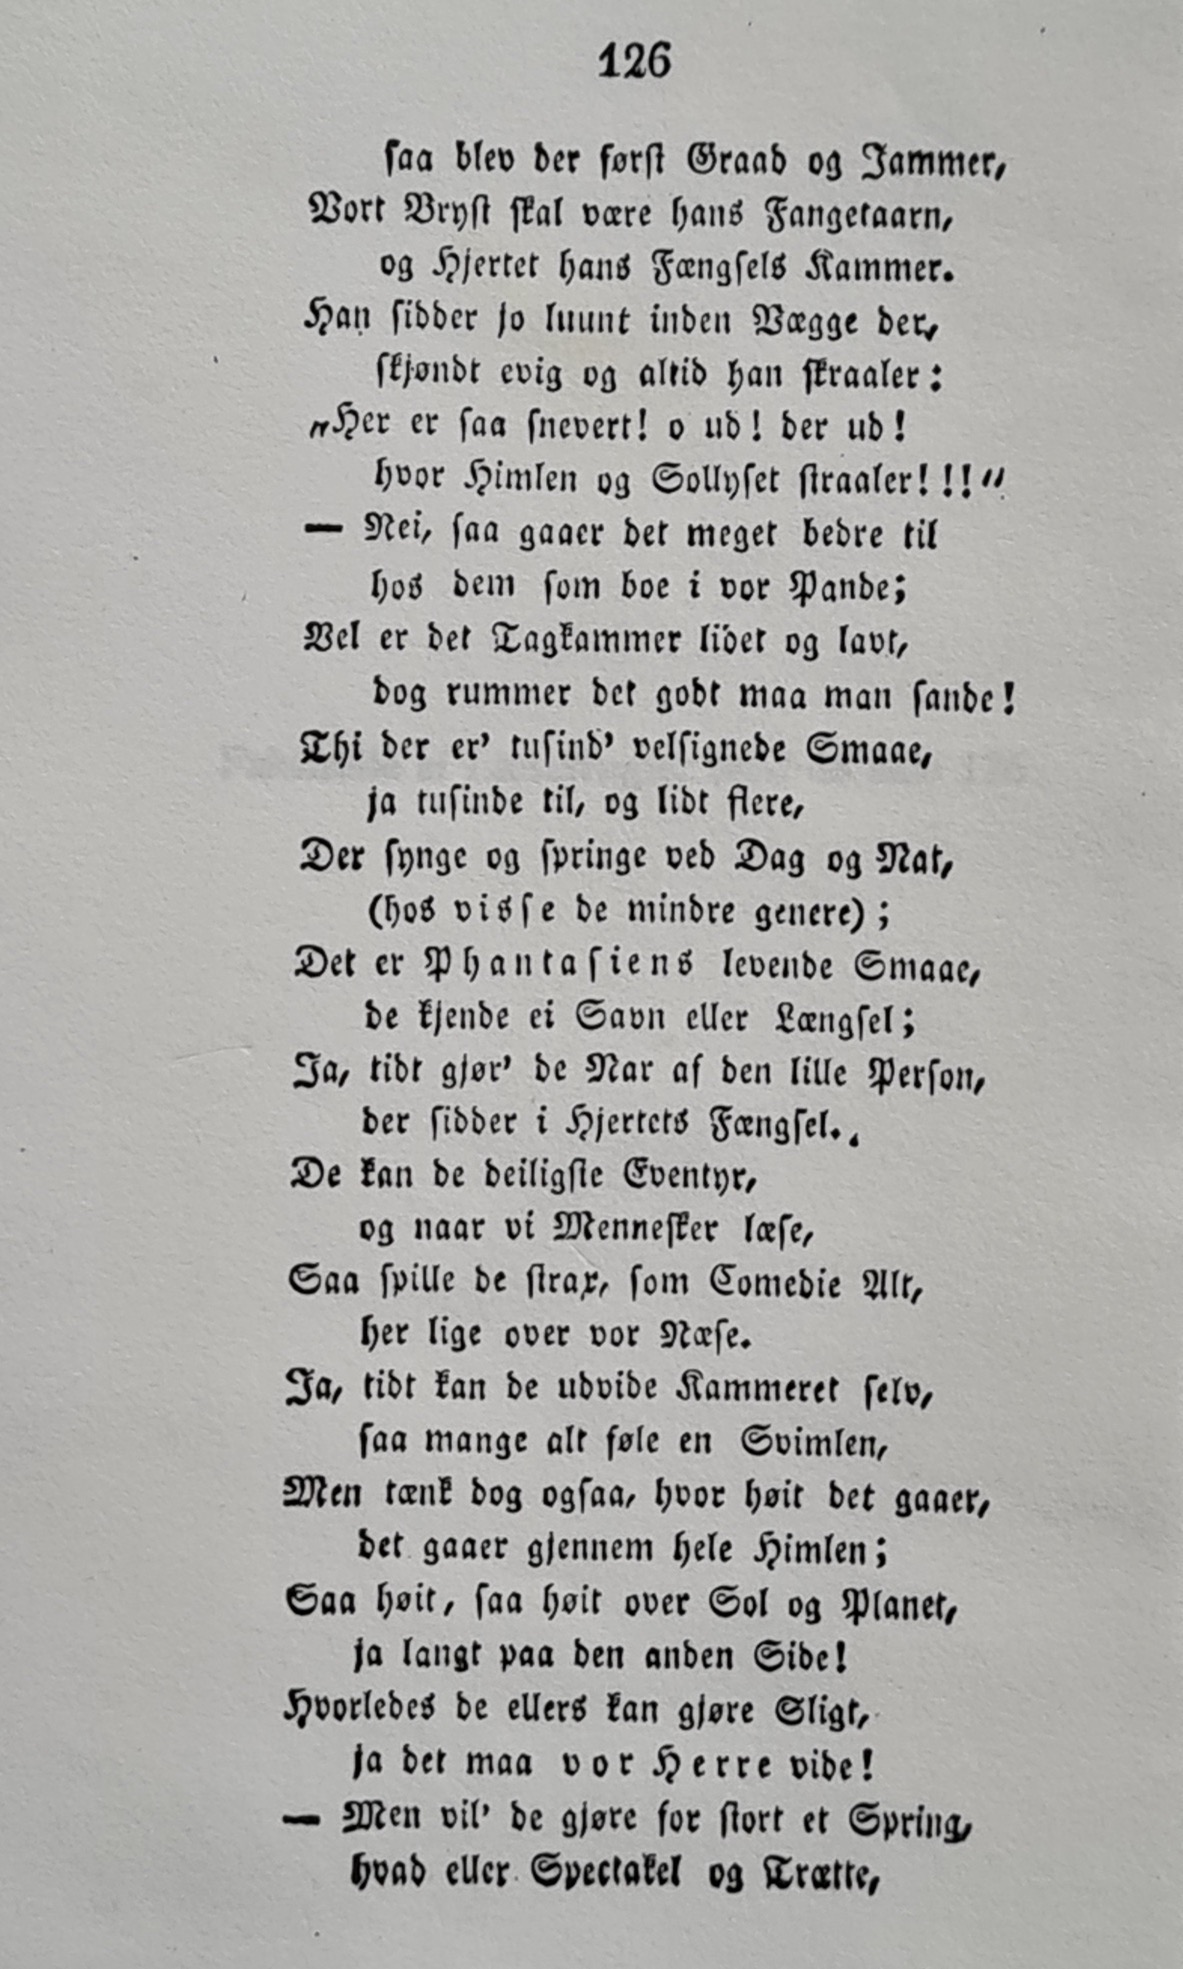 126
saa blev der først Graad og Jammer,
Vort Bryst skal være hans Fangetaarn,
og Hjertet hans Fængsels Kammer.
Han sidder jo luunt inden Vægge der,
skjøndt evig og altid han skraaler:
„Her er saa snevert! o ud! der ud!
hvor Himlen og Sollyset straaler!!!"
— Nei, saa gaaer det meget bedre til
hos dem som boe i vor Pande;
Vel er det Tagkammer lidet og lavt,
dog rummer det godt maa man sande!
Thi der er' tusind' velsignede Smaae,
ja tusinde til, og lidt flere,
Der synge og springe ved Dag og Nat,
(hos visse de mindre genere);
Det er Phantasiens levende Smaae,
de kjende ei Savn eller Længsel;
Ja, tidt gjør' de Nar af den lille Person,
der sidder i Hjertets Fængsel.
De kan de deiligste Eventyr,
og naar vi Mennesker læse,
Saa spille de strax, som Comedie Alt,
her lige over vor Næse.
Ja, tidt kan de udvide Kammeret selv,
saa mange alt føle en Svimlen,
Men tænk dog ogsaa, hvor høit det gaaer,
det gaaer gjennem hele Himlen;
Saa høit, saa høit over Sol og Planet,
ja langt paa den anden Side!
Hvorledes de ellers kan gjøre Sligt,
ja det maa vor Herre vide!
— Men vil' de gjøre for stort et Spring,
hvad eller Spectakel og Trætte,